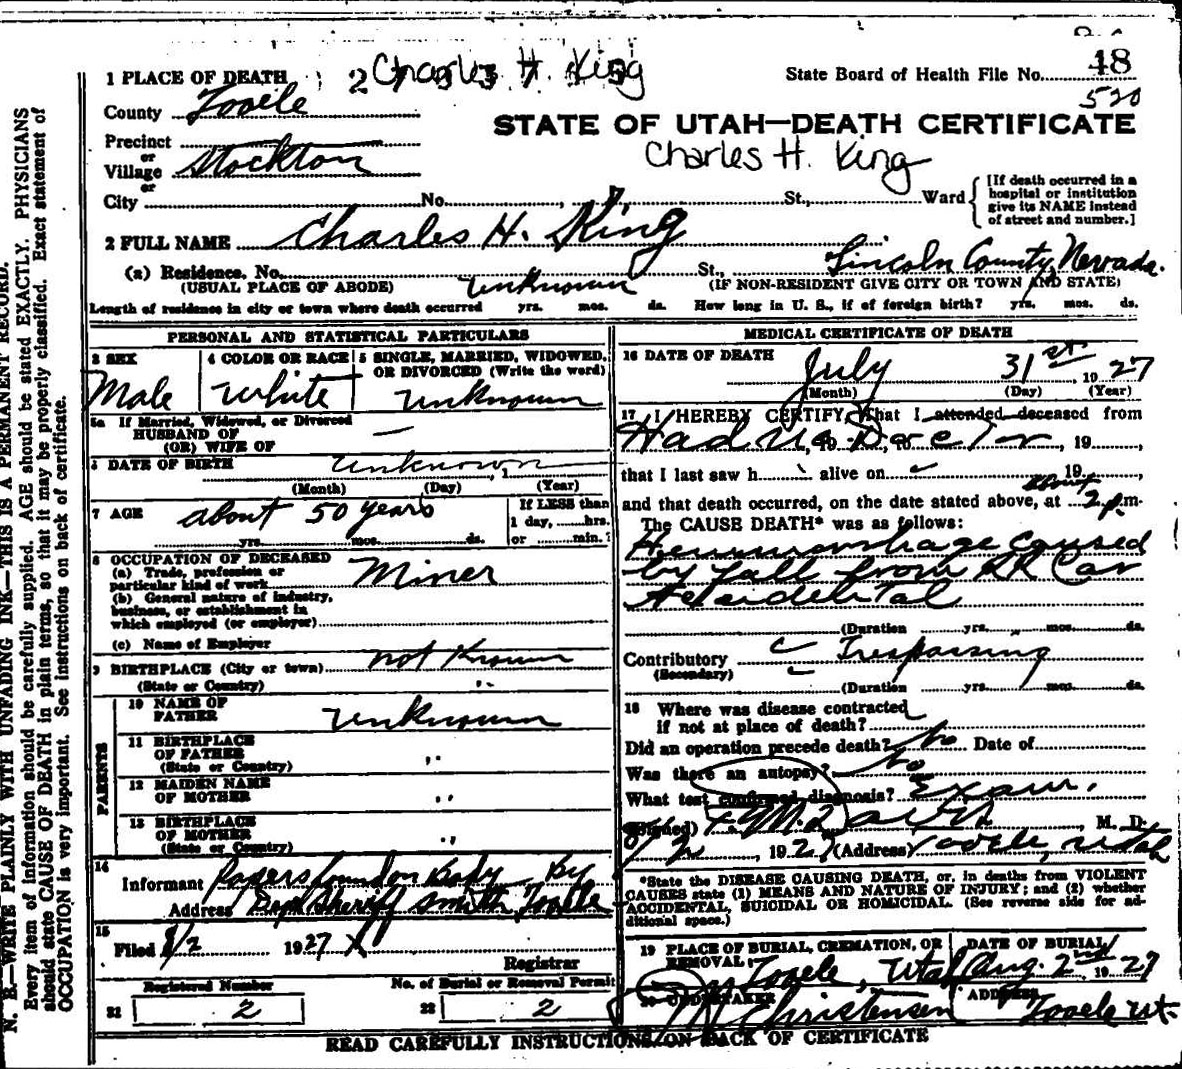 48
1 PLACE OF DEATH Charles H. King State Board of Health File No.
520
County Tooele
STATE OF UTAH—DEATH CERTIFICATE
Charles H. King
Precinct
or
Village Stockton
or
City No. St., Ward
[If death occurred in a
hospital or institution
give its NAME instead
of street and number.]
2 FULL NAME Charles H. King
(a) Residence. No. St., Lincoln County, Nevada.
(USUAL PLACE OF ABODE) unknown (IF NON-RESIDENT GIVE CITY OR TOWN AND STATE)
Length of residence in city or town where death occurred yrs. mos. ds. How long in U. S., if of foreign birth? yrs. mos. ds.
PERSONAL AND STATISTICAL PARTICULARS
3 SEX
Male
4 COLOR OR RACE
White
5 SINGLE, MARRIED, WIDOWED,
OR DIVORCED (Write the word)
unknown
5a If Married, Widowed, or Divorced
HUSBAND OF
(OR) WIFE OF —
6 DATE OF BIRTH unknown
(Month) (Day) (Year)
7 AGE about 50 years
yrs. mos. ds.
If LESS than
1 day, hrs.
or min.?
8 OCCUPATION OF DECEASED
(a) Trade, profession or
particular kind of work Miner
(b) General nature of industry,
business, or establishment in
which employed (or employer)
(c) Name of Employer
9 BIRTHPLACE (City or town) not known
(State or Country) "
PARENTS
10 NAME OF
FATHER unknown
11 BIRTHPLACE
OF FATHER
(State or Country) "
12 MAIDEN NAME
OF MOTHER "
13 BIRTHPLACE
OF MOTHER
(State or Country) "
14
Informant Papers found on Body By
Address Dept Sheriff Smith, Tooele
15
Filed 8/2 1927
Registrar
Registered Number
21 2
No. of Burial or Removal Permit
22 2
MEDICAL CERTIFICATE OF DEATH
16 DATE OF DEATH
July 31st, 1927
(Month) (Day) (Year)
17 I HEREBY CERTIFY That I attended deceased from
Had no Doctor, 19
that I last saw h alive on 19
about
and that death occurred, on the date stated above, at 2 p.m.
The CAUSE DEATH* was as follows:
Hemmorrhage caused
by fall from RR Car
Accidental
(Duration yrs. mos. ds.
Contributory Trespassing
(Secondary)
(Duration yrs. mos. ds.
18 Where was disease contracted
if not at place of death?
Did an operation precede death? no Date of
Was there an autopsy? no
What test confirmed diagnosis? Exam.
(Signed) M. D.
8/2, 1927 (Address) Tooele, Utah
*State the DISEASE CAUSING DEATH, or, in deaths from VIOLENT
CAUSES state (1) MEANS AND NATURE OF INJURY; and (2) whether
ACCIDENTAL, SUICIDAL OR HOMICIDAL. (See reverse side for ad-
ditional space.)
19 PLACE OF BURIAL, CREMATION, OR
REMOVAL:
Tooele, Utah
DATE OF BURIAL
Aug. 2nd 1927
20 UNDERTAKER
Christensen
ADDRESS
Tooele Ut.
READ CAREFULLY INSTRUCTIONS ON BACK OF CERTIFICATE
N. B.—WRITE PLAINLY WITH UNFADING INK—THIS IS A PERMANENT RECORD.
Every item of information should be carefully supplied. AGE should be stated EXACTLY. PHYSICIANS
should state CAUSE OF DEATH in plain terms, so that it may be properly classified. Exact statement of
OCCUPATION is very important. See instructions on back of certificate.